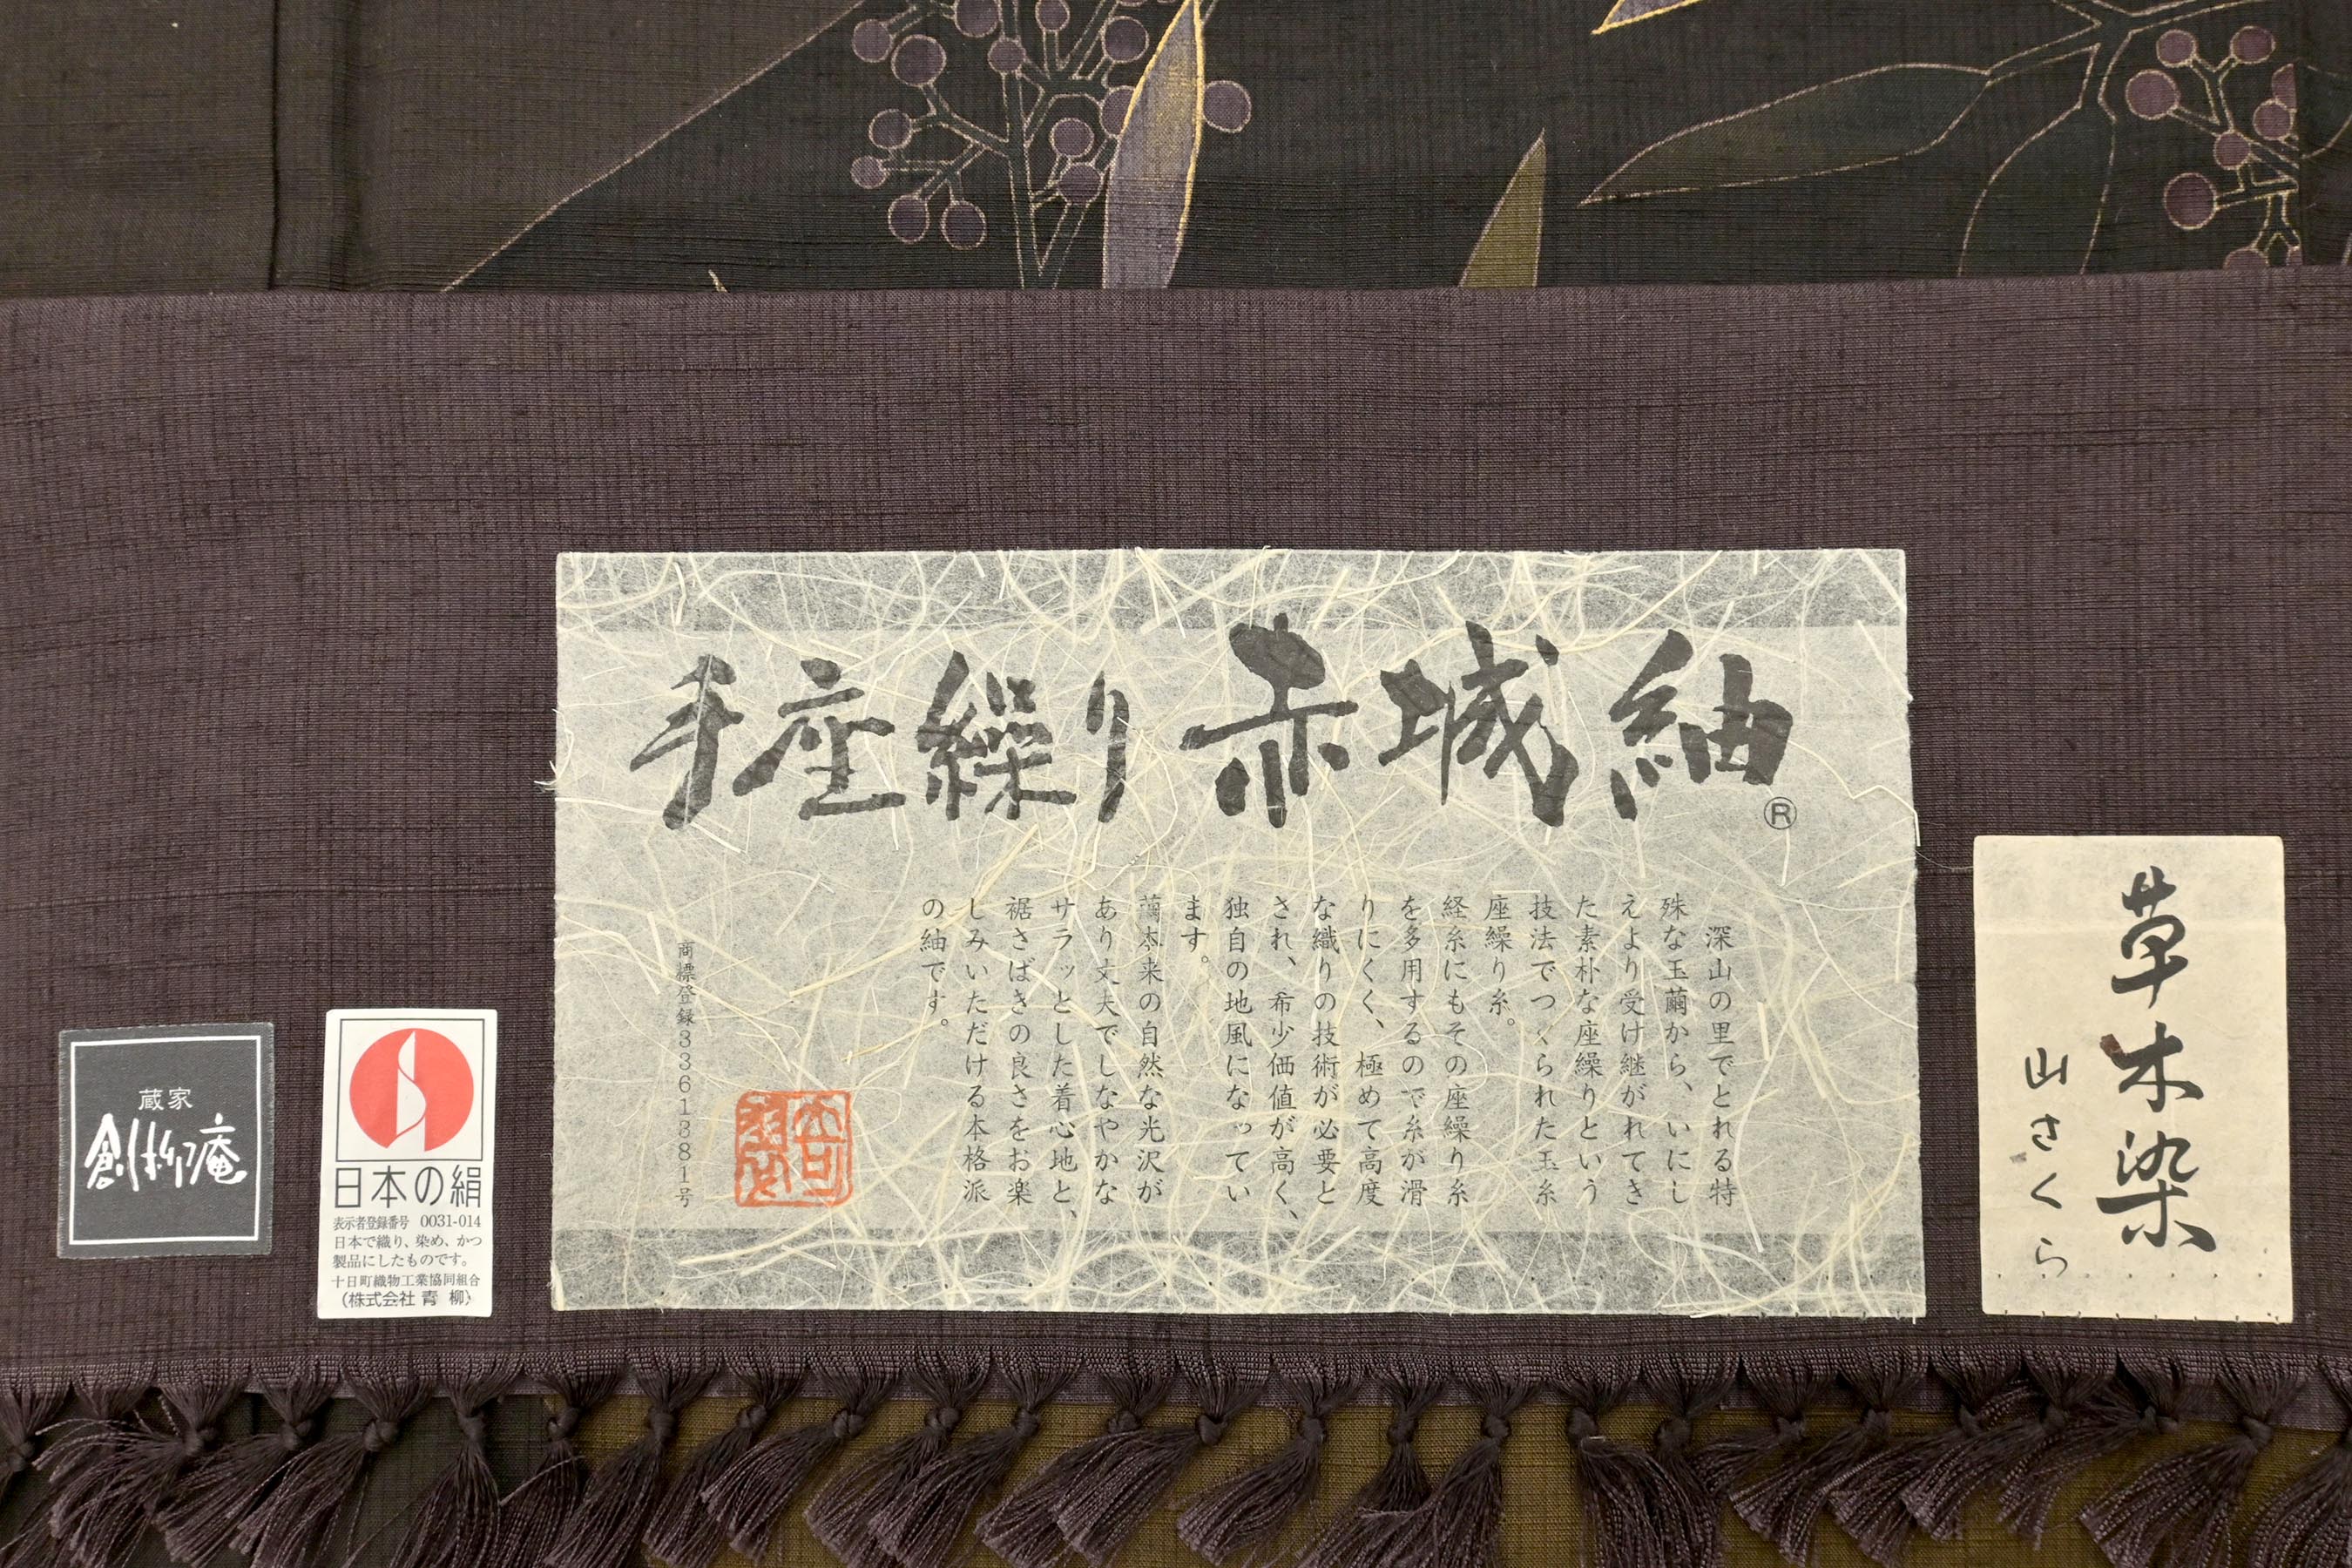 手座繰り赤城紬
®
深山の里でとれる特
殊な玉繭から、いにし
えより受け継がれてき
た素朴な座繰りという
技法でつくられた玉糸
座繰り糸。
経糸にもその座繰り糸
を多用するので糸が滑
りにくく、極めて高度
な織りの技術が必要と
され、希少価値が高く、
独自の地風になってい
ます。
繭本来の自然な光沢が
あり丈夫でしなやかな
サラッとした着心地と、
裾さばきの良さをお楽
しみいただける本格派
の紬です。
商標登録3361381号
草木染
山さくら
日本の絹
表示者登録番号 0031-014
日本で織り、染め、かつ
製品にしたものです。
十日町織物工業協同組合
(株式会社 青 柳)
蔵家
創作工庵